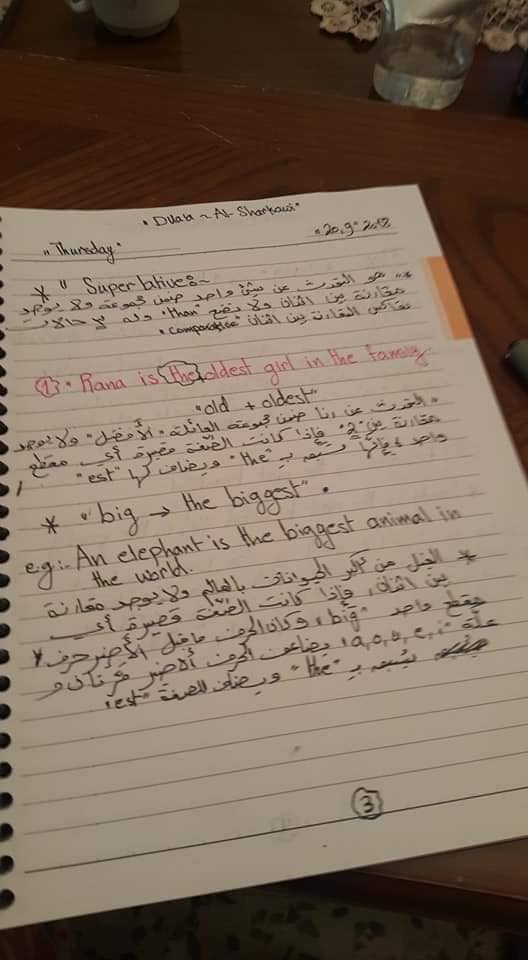 "Duaa ~ Al-Sharkawi"
"Thursday" "20,9" 2018
* "Superlative:~
"* هو التحدث عن شئ واحد ضمن مجموعة ولا يوجد
مقارنة بين اثنان ولا نضع "than" وله 3 حالات
بعكس المقارنة بين اثنان "comparative"
1. Rana is the oldest girl in the family.
"old + oldest"
"التحدث عن رنا ضمن مجموعة العائلة "الأفضل" ولا يوجد
مقارنة بين "2" فإذا كانت الصفة قصيرة أي مقطع
واحد فإنها تسبق بـ "the" ويضاف لها "est"
* "big → the biggest".
e.g:- An elephant is the biggest animal in
the world.
* الفيل من أكبر الحيوانات بالعالم ولا يوجد مقارنة
بين اثنان، فإذا كانت الصفة قصيرة أي
مقطع واحد "big" وكان الحرف ما قبل الأخير حرف
علة "a, o, u, e, i" يضاعف الحرف الأخير و
تسبق بـ "the" ويضاف للصفة "est"
3